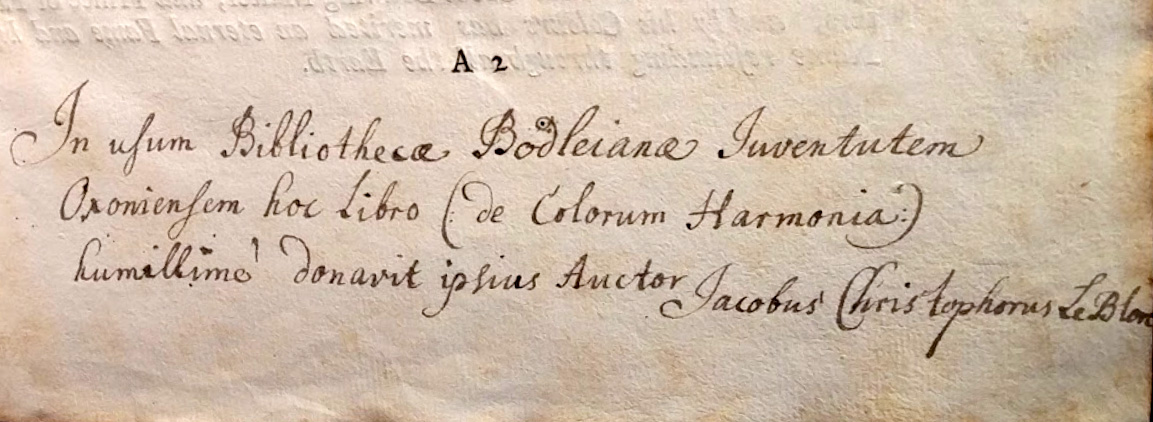 A 2
In usum Bibliothecæ Bodleianæ Iuventutem
Oxoniensem hoc Libro (: de Colorum Harmoniâ :)
humillimè donavit ipsius Auctor Jacobus Christophorus Le Blon